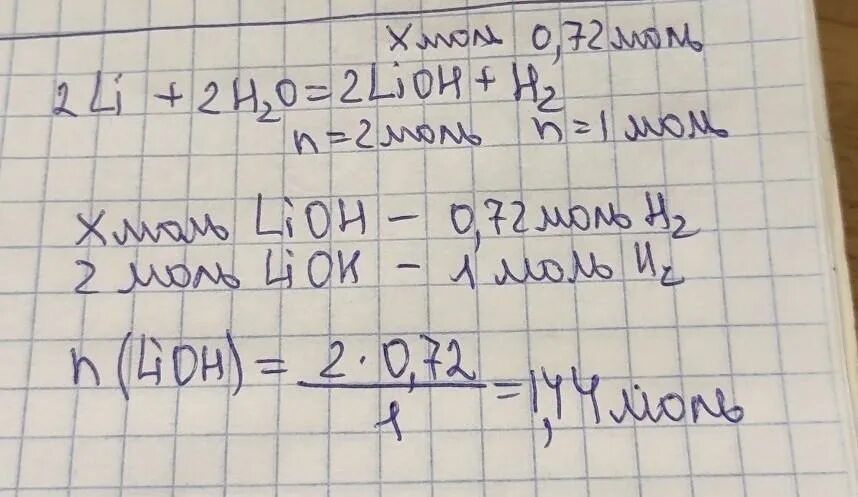 x моль 0,72 моль
2Li + 2H₂O = 2LiOH + H₂
n = 2 моль n = 1 моль
x моль LiOH – 0,72 моль H₂
2 моль LiOH – 1 моль H₂
n (LiOH) = 2 · 0,72 / 1 = 1,44 моль